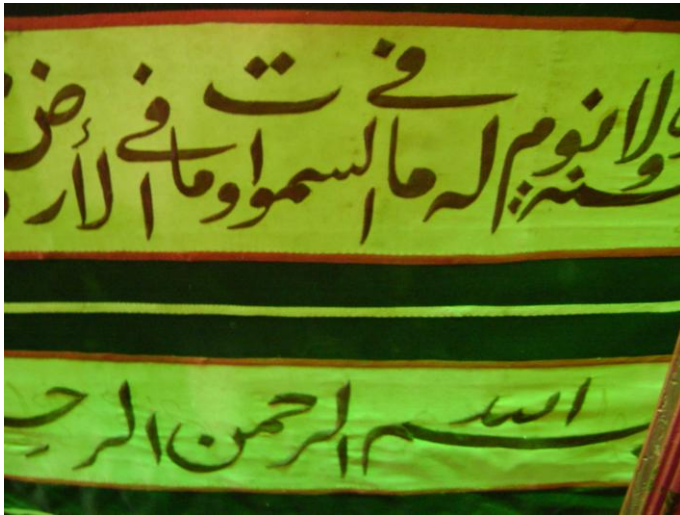 سنة ولا نوم له ما في السموات وما في الأرض
بسم الله الرحمن الرحـ